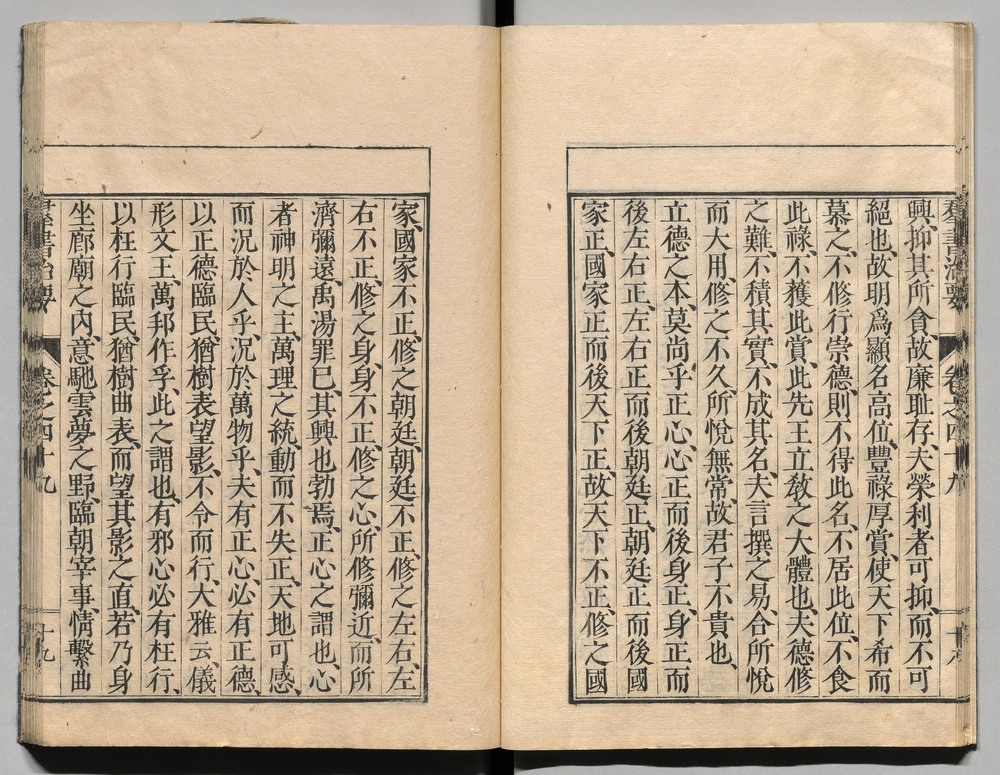 羣書治要
卷之四十九
十八
興、抑其所貪、故廉耻存、夫榮利者可抑、而不可
絕也、故明爲顯名高位、豐祿厚賞、使天下希而
慕之、不修行崇德、則不得此名、不居此位、不食
此祿、不獲此賞、此先王立敎之大體也、夫德修
之難、不積其實、不成其名、夫言撰之易、合所悅
而大用、修之不久、所悅無常、故君子不貴也、
立德之本、莫尚乎正心、心正而後身正、身正而
後左右正、左右正而後朝廷正、朝廷正而後國
家正、國家正而後天下正、故天下不正、修之國
家、國家不正、修之朝廷、朝廷不正、修之左右、左
右不正、修之身、身不正、修之心、所修彌近、而所
濟彌遠、禹湯罪已、其興也勃焉、正心之謂也、心
者神明之主、萬理之統、動而不失正、天地可感、
而況於人乎、況於萬物乎、夫有正心、必有正德、
以正德臨民、猶樹表望影、不令而行、大雅云、儀
形文王、萬邦作孚、此之謂也、有邪心、必有枉行、
以枉行臨民、猶樹曲表、而望其影之直、若乃身
坐廊廟之內、意馳雲夢之野、臨朝宰事、情繫曲
羣書治要
卷之四十九
十九